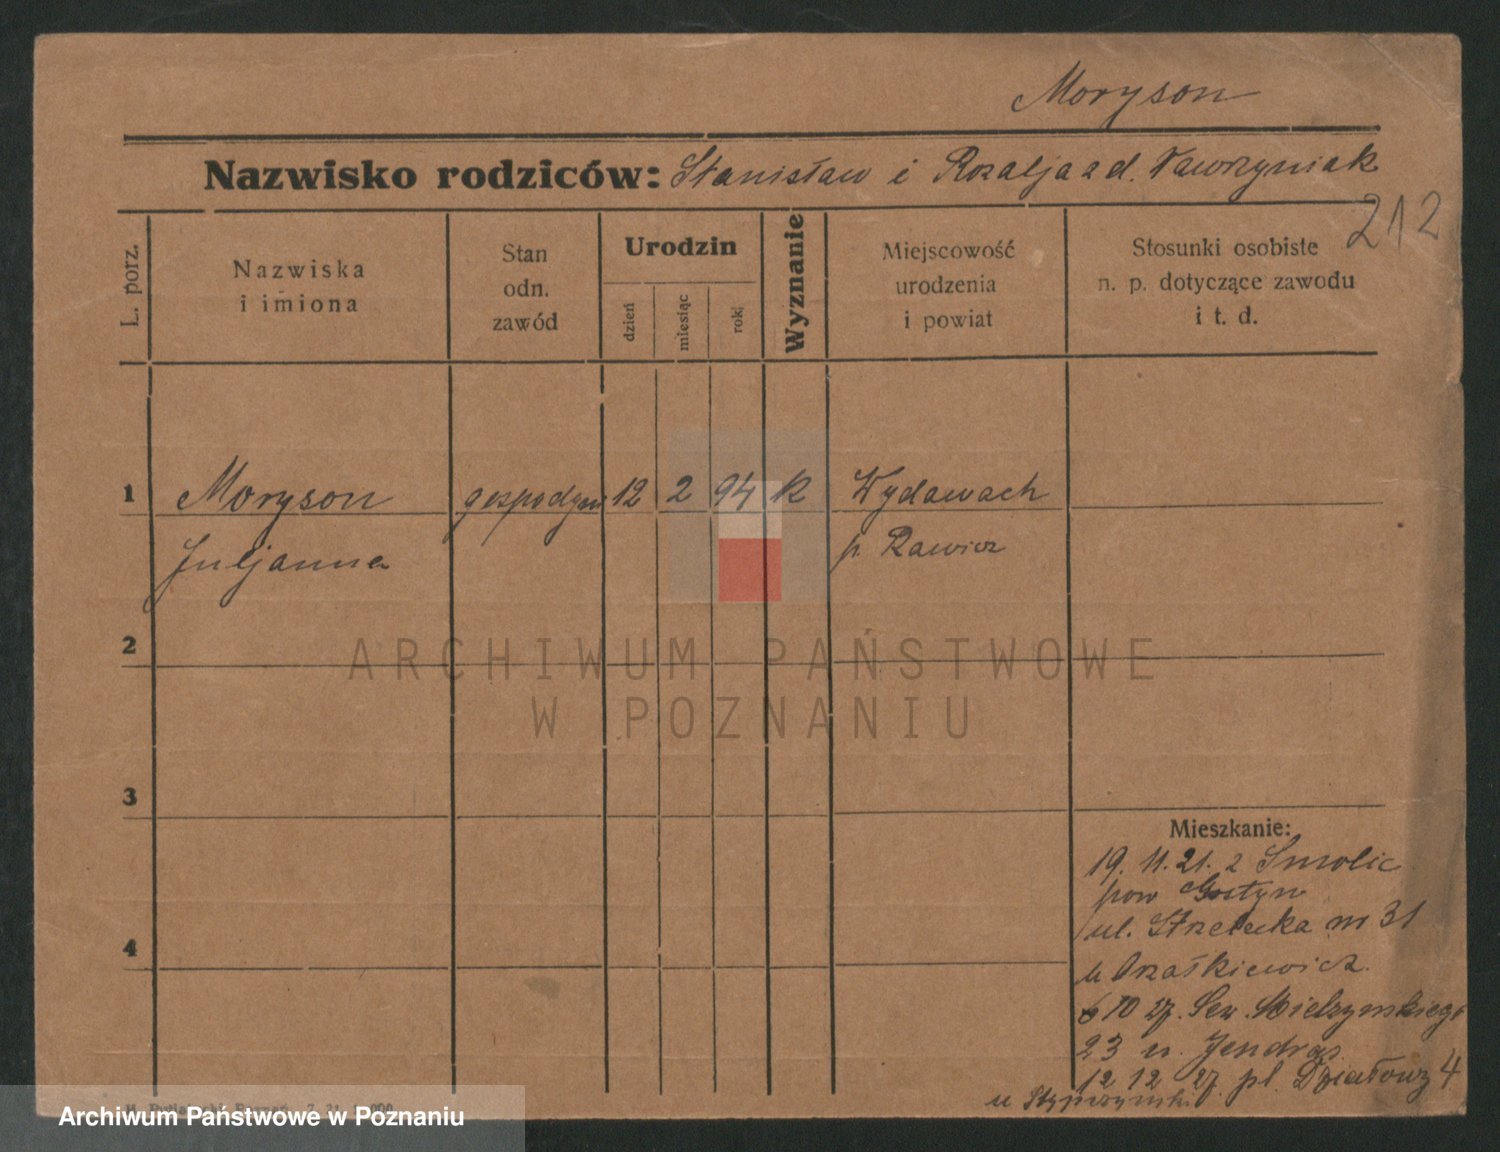 Moryson
Nazwisko rodziców: Stanisław i Rozalja z d. Wawrzyniak
212
L. porz.
Nazwiska
i imiona
Stan
odn.
zawód
Urodzin
dzień
miesiąc
rok
Wyznanie
Miejscowość
urodzenia
i powiat
Stosunki osobiste
n. p. dotyczące zawodu
i t. d.
1 Moryson gospodyni 12 2 94 k Wydawach
Juljanna p. Rawicz
2
ARCHIWUM PAŃSTWOWE
W POZNANIU
3
Mieszkanie:
19. 11. 21. z Smolic
pow Gostyn
ul. Strzelecka nr 31
4
6 10 27. Sew. Mielzynskiego
23 u. Jendras
12 12 27 pl. Działowy 4
Archiwum Państwowe w Poznaniu